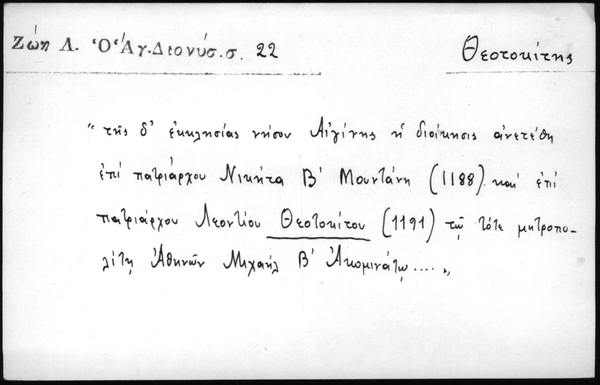 Ζώη Λ. Ὁ Ἅγ. Διονύσ. σ. 22
Θεοτοκίτης
"τῆς δ' ἐκκλησίας νήσου Αἰγίνης ἡ διοίκησις ἀνετέθη
ἐπί πατριάρχου Νικήτα Β' Μουντάνη (1188) καί ἐπί
πατριάρχου Λεοντίου Θεοτοκίτου (1191) τῷ τότε μητροπο-
λίτῃ Ἀθηνῶν Μιχαήλ Β' Ἀκομινάτῳ....„